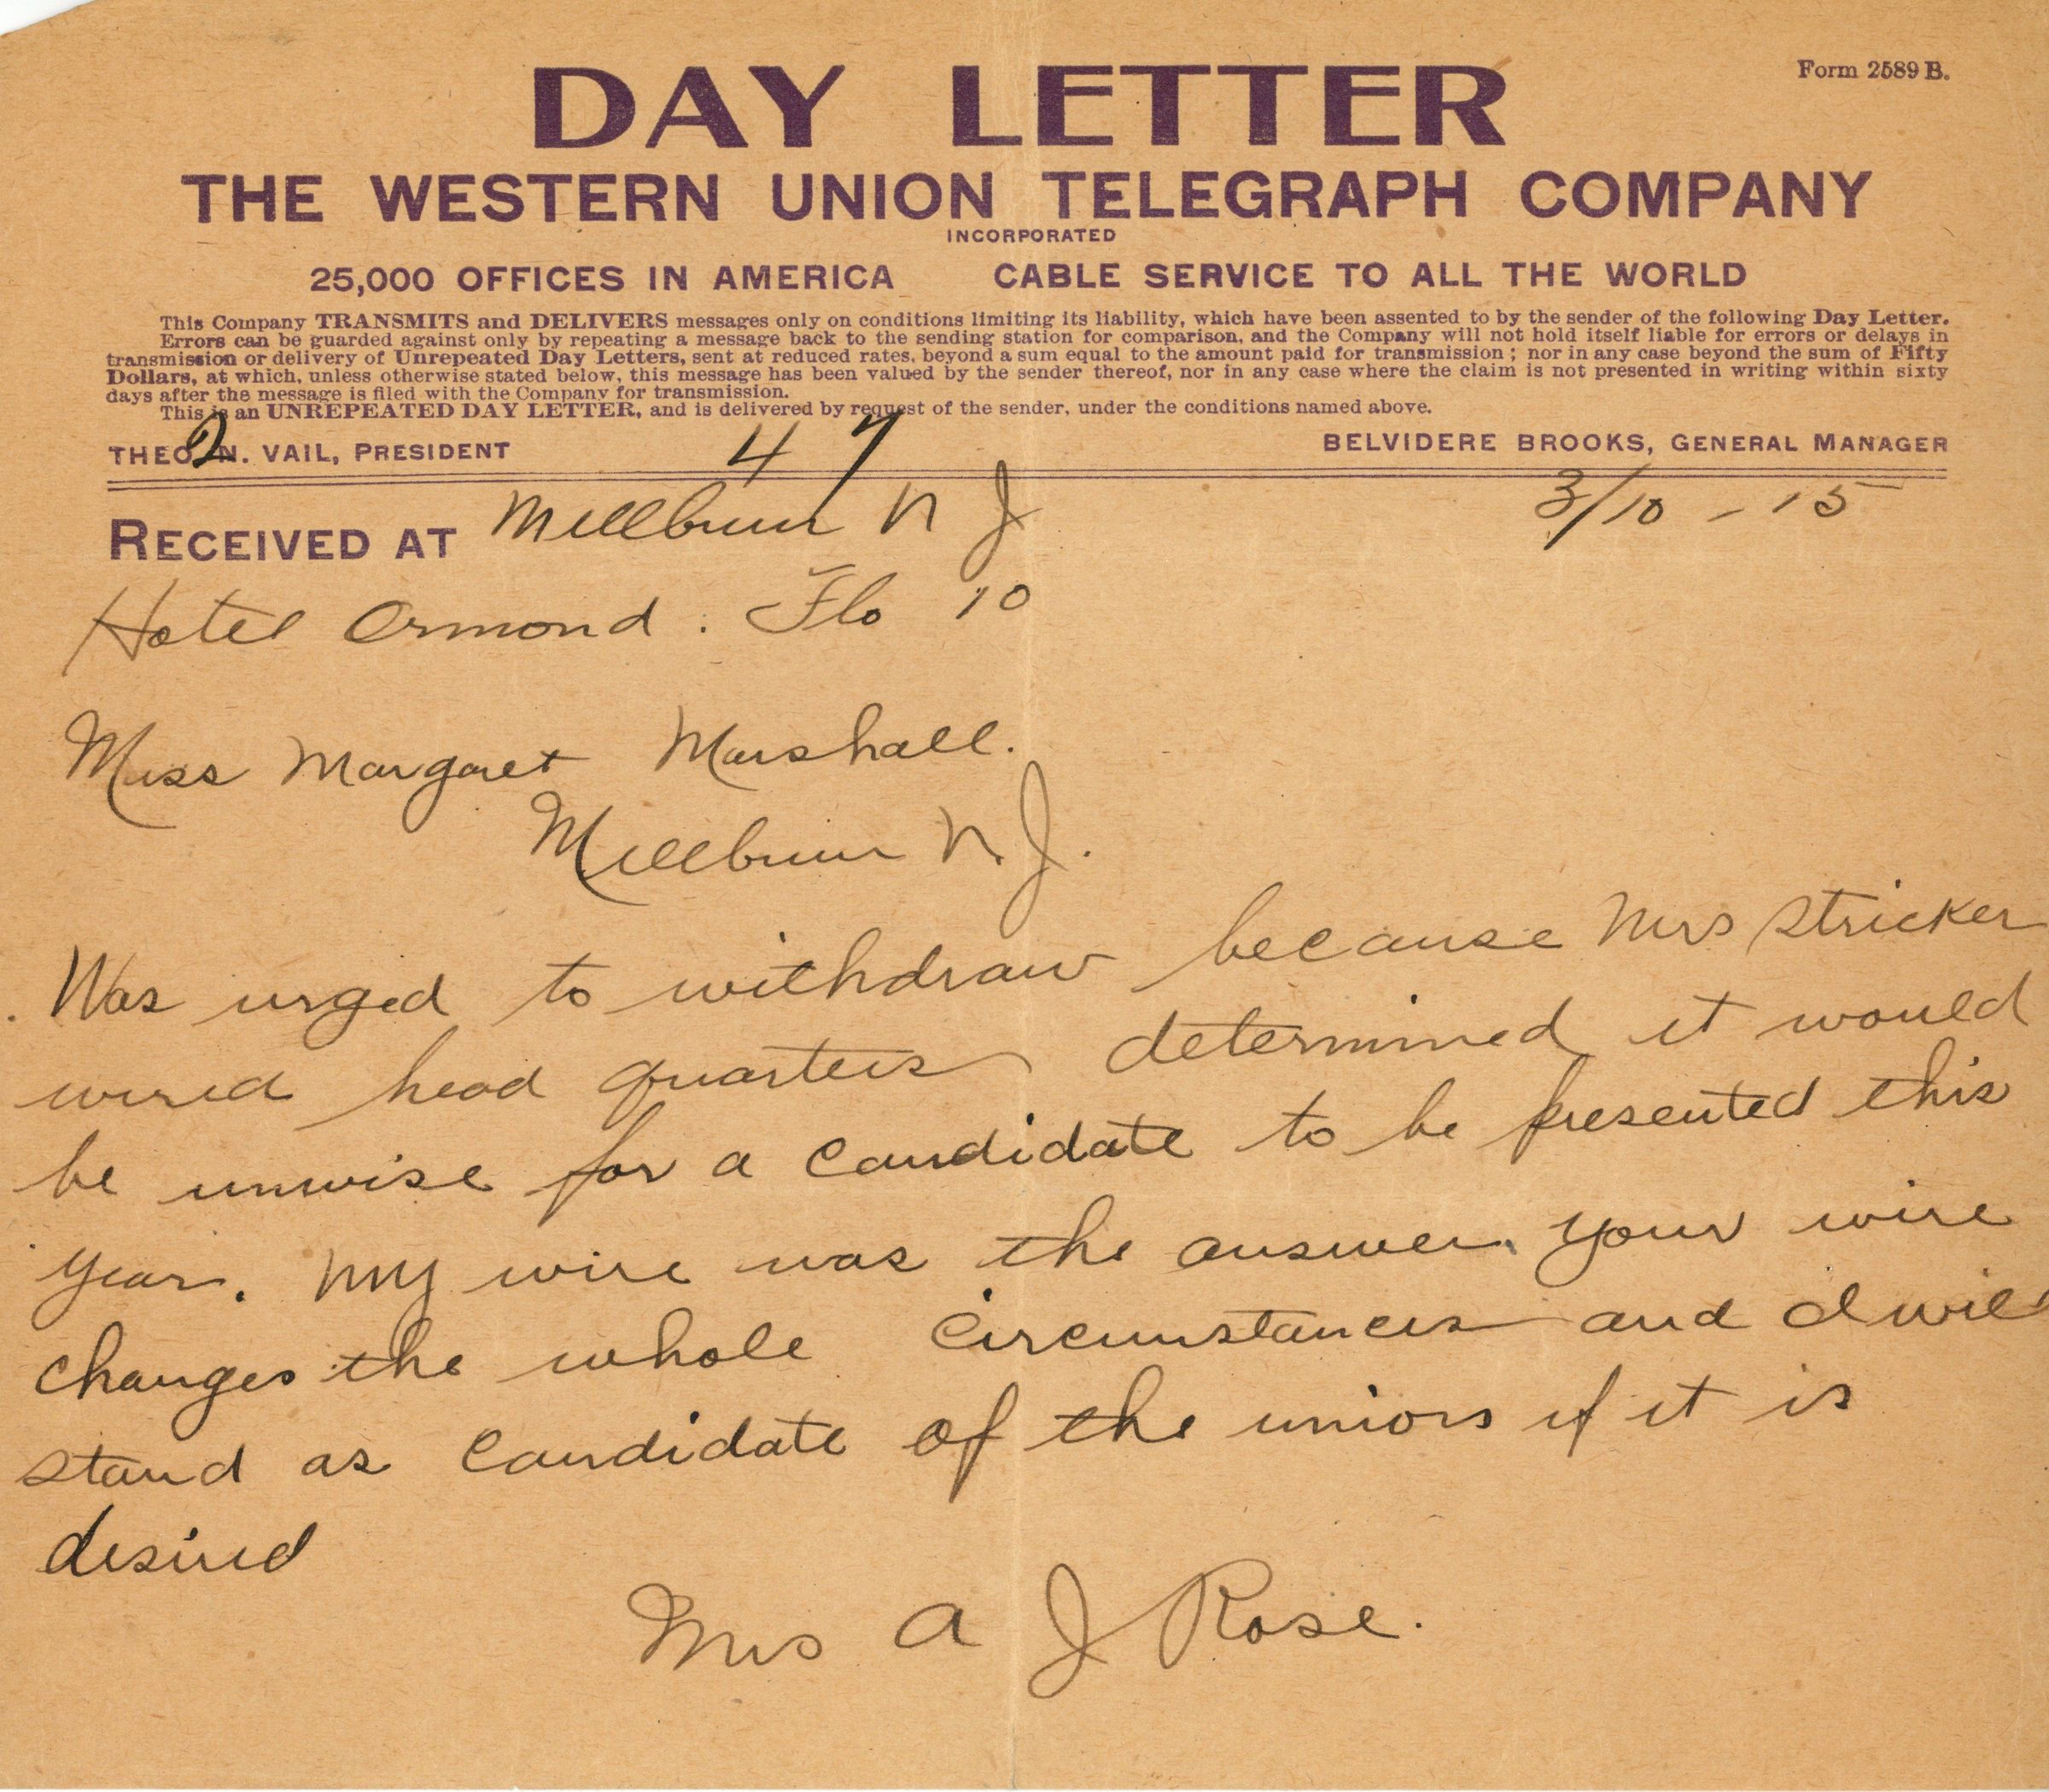 Form 2589 B.
DAY LETTER
THE WESTERN UNION TELEGRAPH COMPANY
INCORPORATED
25,000 OFFICES IN AMERICA CABLE SERVICE TO ALL THE WORLD
This Company TRANSMITS and DELIVERS messages only on conditions limiting its liability, which have been assented to by the sender of the following Day Letter.
Errors can be guarded against only by repeating a message back to the sending station for comparison, and the Company will not hold itself liable for errors or delays in
transmission or delivery of Unrepeated Day Letters, sent at reduced rates, beyond a sum equal to the amount paid for transmission; nor in any case beyond the sum of Fifty
Dollars, at which, unless otherwise stated below, this message has been valued by the sender thereof, nor in any case where the claim is not presented in writing within sixty
days after the message is filed with the Company for transmission.
This is an UNREPEATED DAY LETTER, and is delivered by request of the sender, under the conditions named above.
THEO. N. VAIL, PRESIDENT BELVIDERE BROOKS, GENERAL MANAGER
2 47
RECEIVED AT Millburn N J 3/10 - 15
Hotel Ormond. Flo 10
Miss Margaret Marshall.
Millburn N. J.
Was urged to withdraw because Mrs Stricker
wired head quarters determined it would
be unwise for a candidate to be presented this
year. My wire was the answer. your wire
changes the whole circumstances and I will
stand as candidate of the unions if it is
desired
Mrs A J Rose.